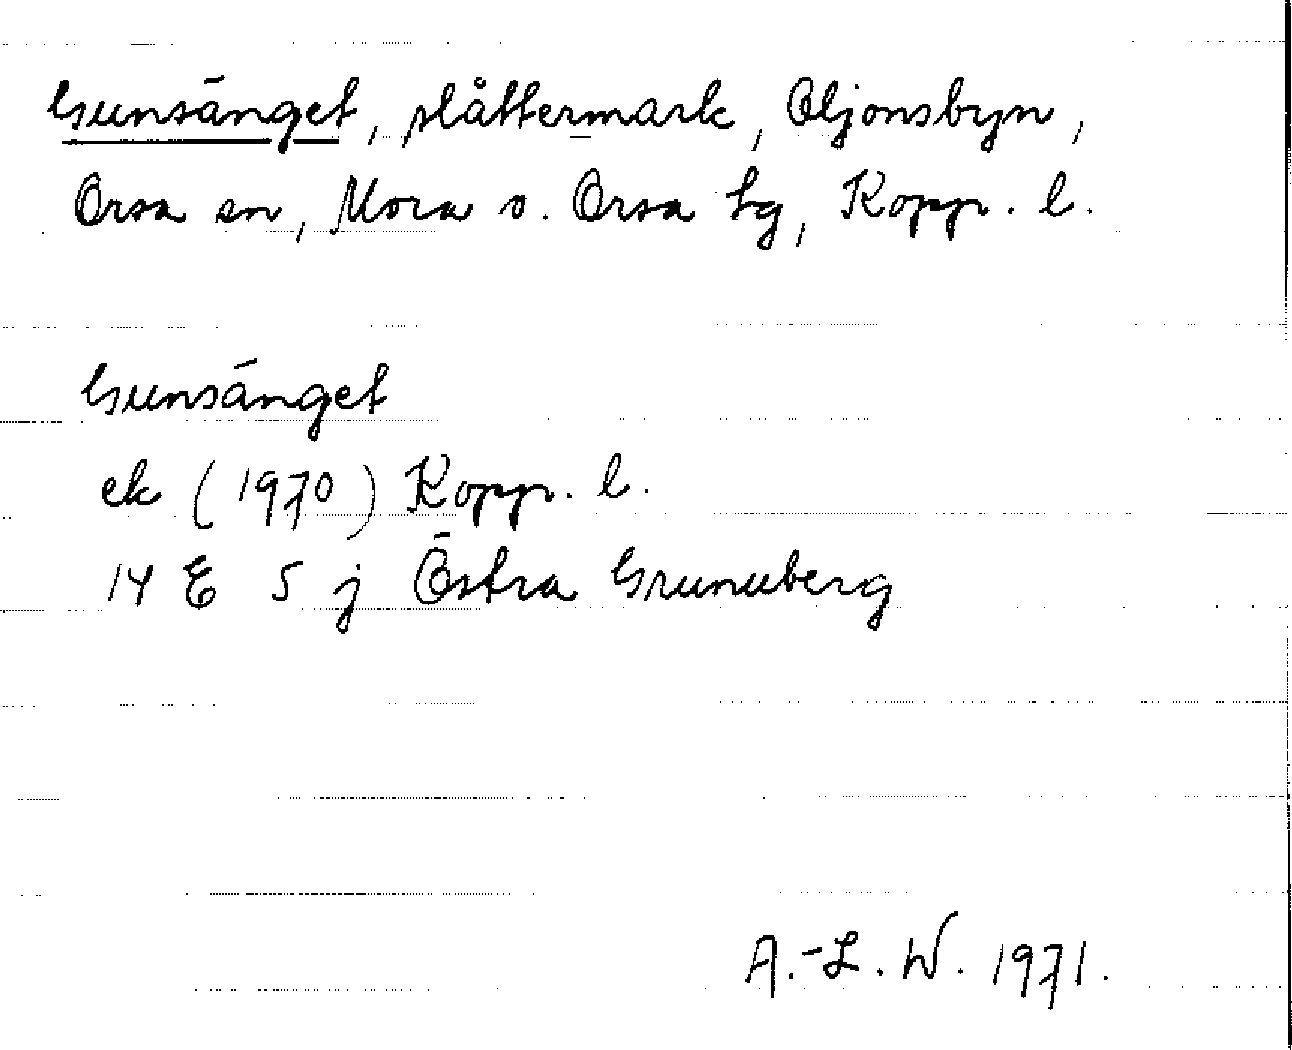 Gunsänget, slåttermark, Oljonsbyn,
Orsa sn, Mora o. Orsa tg, Kopp. l.
Gunsänget
ek (1970) Kopp. l.
14 E 5 j Östra Grunuberg
A.-L. W. 1971.